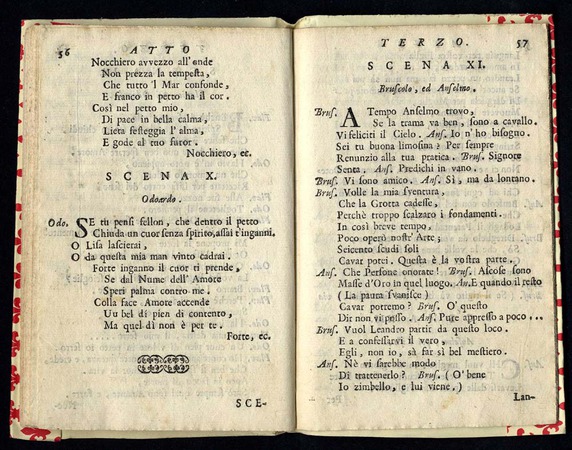 56 ATTO
Nocchiero avvezzo all'onde
Non prezza la tempesta,
Che tutto 'l Mar confonde,
E franco in petto ha il cor.
Così nel petto mio,
Di pace in bella calma,
Lieta festeggia l'alma,
E gode al tuo furor.
Nocchiero, ec.
SCENA X.
Odoardo.
Odo. SE tu pensi fellon, che dentro il petto
Chiuda un cuor senza spirito, assai t'inganni.
O Lisa lascierai,
O da questa mia man vinto cadrai.
Forte inganno il cuor ti prende,
Se dal Nume dell' Amore
Speri palma contro me.
Colla face Amore accende
Uu bel dì pien di contento,
Ma quel dì non è per te.
Forte, ec.
SCE-
TERZO. 57
SCENA XI.
Bruscolo, ed Anselmo.
Brus. A Tempo Anselmo trovo,
Se la trama va ben, sono a cavallo.
Vi feliciti il Cielo. Ans. Io n'ho bisogno.
Sei tu buona limosina? Per sempre
Renunzio alla tua pratica. Brus. Signore
Senta. Ans. Predichi in vano.
Brus. Vi sono amico. Ans. Sì, ma da lontano.
Brus. Volle la mia sventura,
Che la Grotta cadesse,
Perchè troppo scalzaro i fondamenti.
In così breve tempo,
Poco operò nost' Arte;
Seicento scudi soli
Cavar potei. Questa è la vostra parte.
Ans. Che Persone onorate! Brus. Ascose sono
Masse d'Oro in quel luogo. An. E quando il resto
(La paura svanisce)
Cavar potremo? Brus. O' questo
Dir non vi posso. Ans. Pure appresso a poco...
Brus. Vuol Leandro partir da questo loco.
E a confessarvi il vero,
Egli, non io, sà far sì bel mestiero.
Ans. Nè vi sarebbe modo
Di trattenerlo? Brus. (O' bene
Io zimbello, e lui viene.)
Lan-